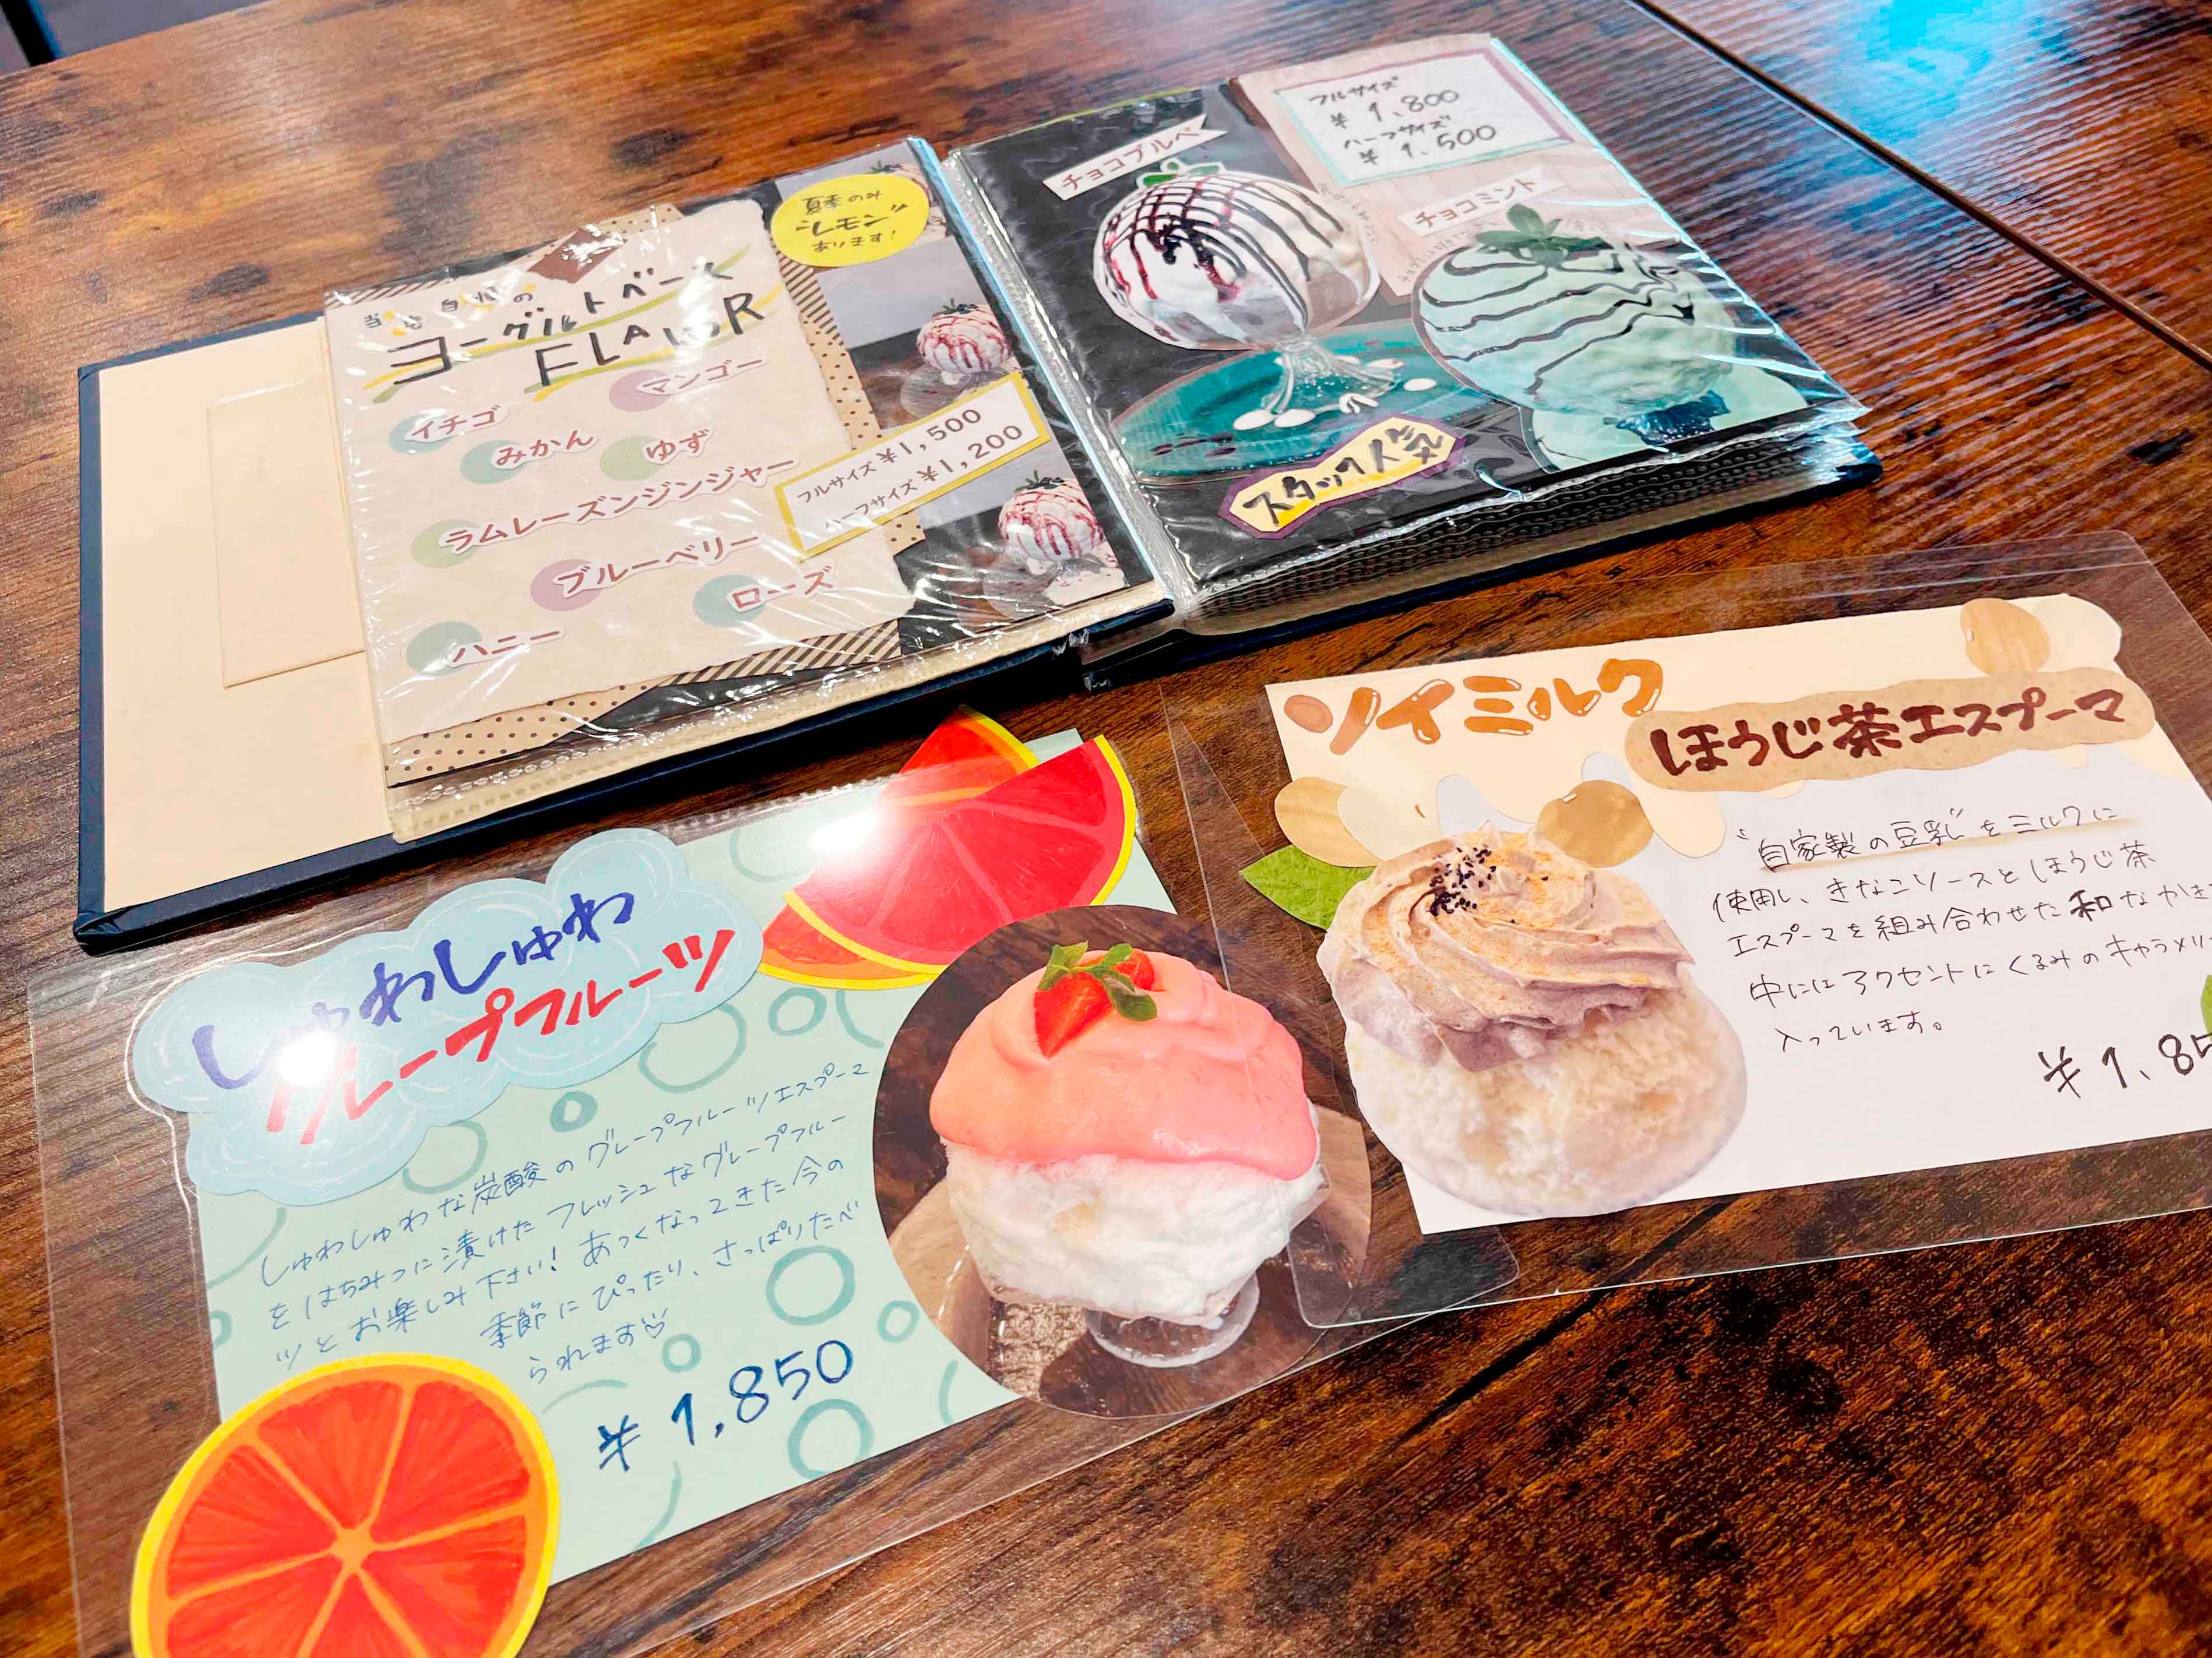 夏季のみ
"レモン"
あります!
当店自慢の
ヨーグルトベース
FLAVOR
マンゴー
イチゴ
みかん
ゆず
ラムレーズンジンジャー
ブルーベリー
ローズ
ハニー
フルサイズ ¥1,500
ハーフサイズ ¥1,200
フルサイズ
¥1,800
ハーフサイズ
¥1,500
チョコブルベ
チョコミント
スタッフ人気
ソイミルク
ほうじ茶エスプーマ
"自家製の豆乳"をミルクに
使用し、きなこソースとほうじ茶
エスプーマを組み合わせた和なかき
中にはアクセントにくるみのキャラメリ
入っています。
¥1,85
しゅわしゅわ
グレープフルーツ
しゅわしゅわな炭酸のグレープフルーツエスプーマ
をはちみつに漬けたフレッシュなグレープフルー
ツとお楽しみ下さい!あつくなってきた今の
季節にぴったり、さっぱりたべ
られます
¥1,850